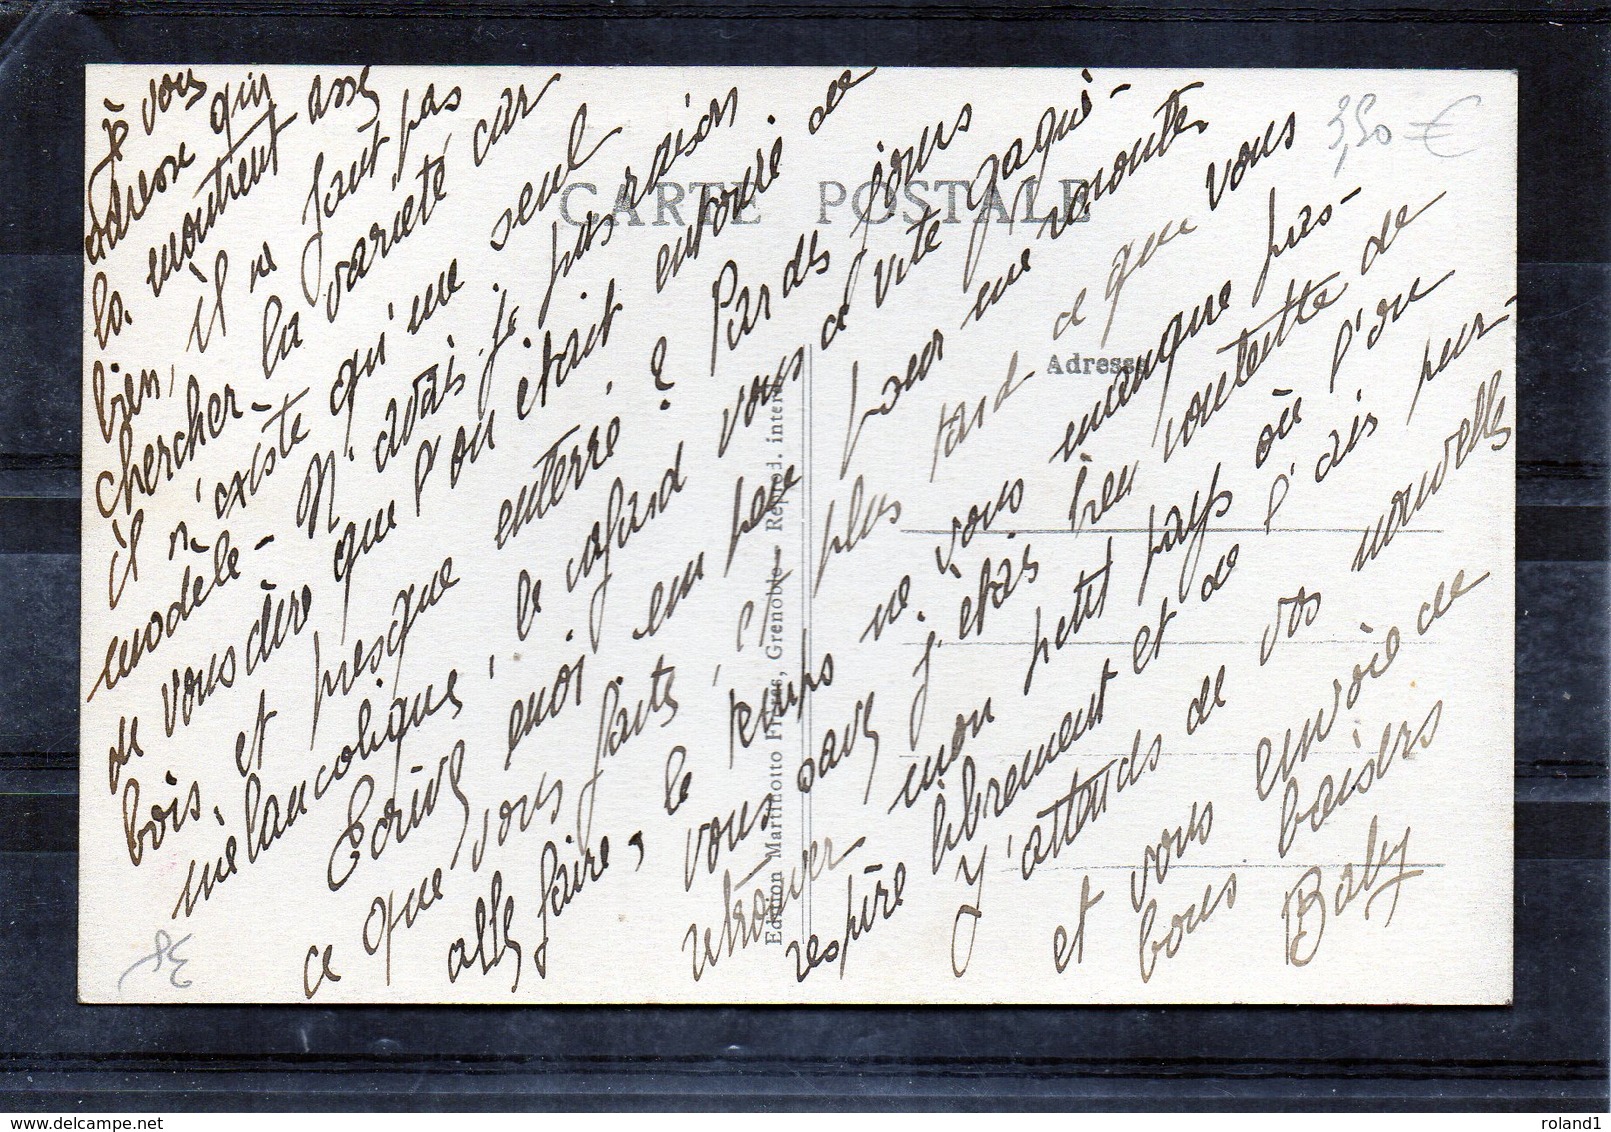 je vous
adresse qui
la montrent assez
bien, il ne faut pas
chercher la variété car
il n'existe qu'un seul
modèle - N'avais-je pas raison
de vous dire que l'on était entouré de
bois, et presque enterré ? Par des jours
mélancoliques, le cafard vous a vite gagné -
Ecrivez moi un peu pour me raconter
ce que vous faites, et plus tard ce que vous
allez faire, le temps ne vous manque pas -
vous savez j'étais bien contente de
retrouver mon petit pays où l'on
respire librement et de l'air pur -
J'attends de vos nouvelles
et vous envoie de
bons baisers
Baby
CARTE POSTALE
Adresse
Edition Martinotto Frères, Grenoble - Reprod. interd.
3,50 €
roland1
www.delcampe.net